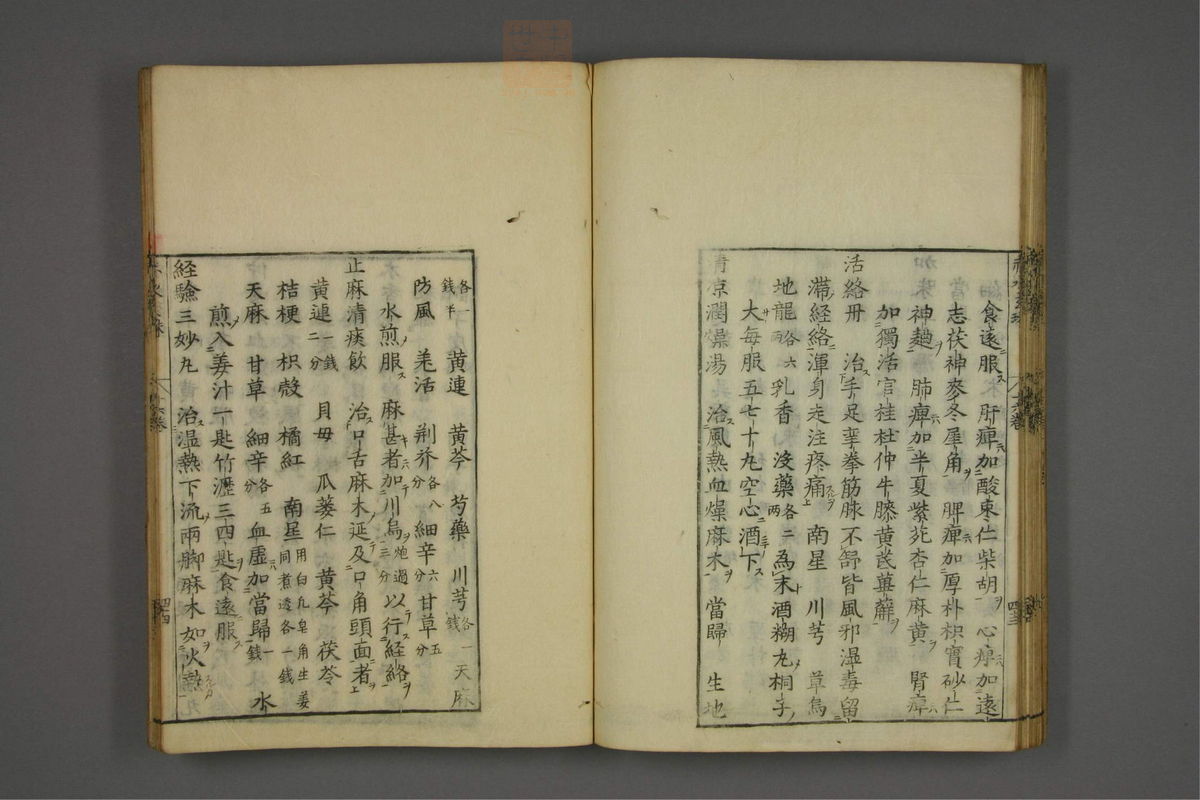 食遠服 肝痺加酸棗仁柴胡 心痺加遠
志茯神麥冬犀角 脾痺加厚朴枳實砂仁
神麯 肺痺加半夏紫菀杏仁麻黄 腎痺
加獨活官桂杜仲牛膝黄芪萆薢
活絡丹 治手足挛拳筋脉不舒皆風邪湿毒留
滞経絡渾身走注疼痛 南星 川芎 草烏
地龍各六兩 乳香 没藥各二兩 為末酒糊丸桐子
大每服五七十丸空心酒下
清凉潤燥湯 治風熱血燥麻木 當歸 生地
各一錢半 黄連 黄芩 芍藥 川芎各一錢 天麻
防風 羌活 荆芥各八分 細辛六分 甘草五分
水煎服 麻甚者加川烏炮過三分以行経絡
止麻清痰飲 治口舌麻木延及口角頭面者
黄連一錢二分 貝母 瓜蒌仁 黄芩 茯苓
桔梗 枳殼 橘紅 南星用白凡皂角生姜同煮透各一錢
天麻 甘草 細辛各五分 血虛加當歸一錢 水
煎入姜汁一匙竹瀝三四匙食遠服
経驗三妙丸 治湿熱下流兩脚麻木如火熱
十六卷
四十三
四十四